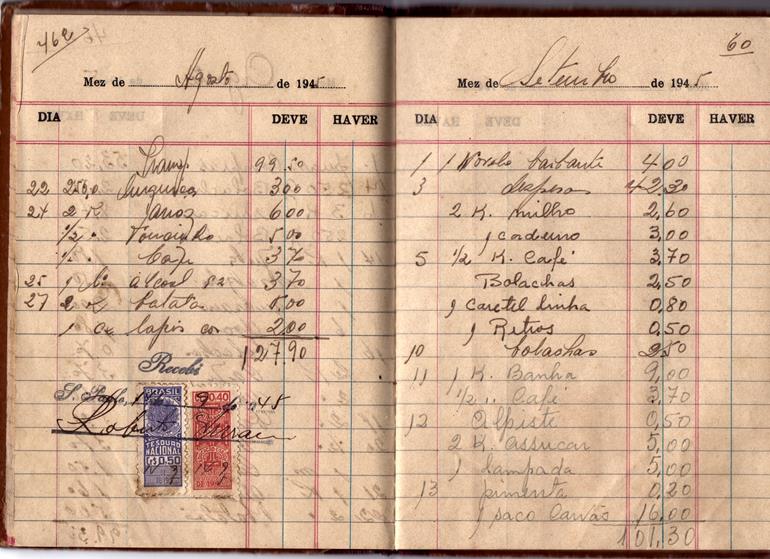 Mez de Agosto de 1945
DIA DEVE HAVER
Transp. 99.50
22 250,0 Linguiça 3 00
24 2 K. arroz 6 00
1/2 " 5.00
1/2 " Café 3 70
25 1 alcool 3.70
27 2 K batata 5.00
1 Cx lapis cor 2.00
127.90
Recebi
S. Paulo, 1 9 45
BRASIL
TESOURO
NACIONAL
0,50
0,40
60
Mez de Setembro de 1945
DIA DEVE HAVER
1 1 Novelo barbante 4.00
3 despesas 42.30
2 K. milho 2,60
1 caderno 3,00
5 1/2 K. Café 3,70
Bolachas 2,50
1 Carretel linha 0,80
1 Retros 0,50
10 bolachas 2.50
11 1 K. Banha 9,00
1/2 " Café 3,70
12 Alpiste 0,50
2 K. assucar 5,00
1 lampada 5,00
13 pimenta 0,20
1 saco Carvão 16,00
101,30